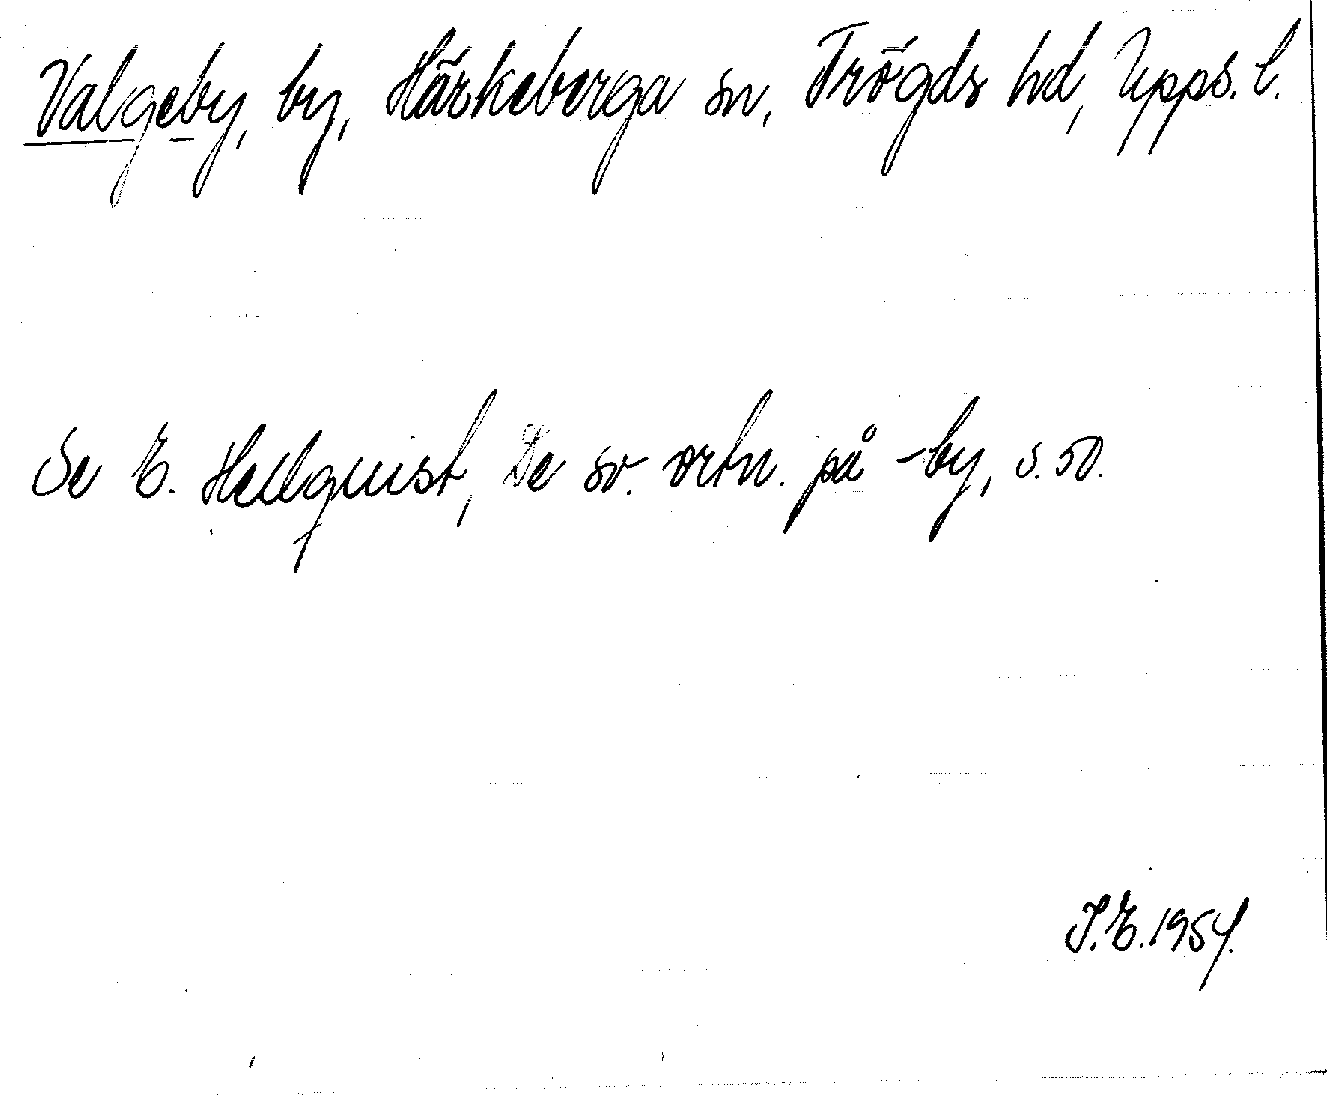 Valgeby, by, Härkeberga sn, Trögds hd, Upps. l.
Se E. Hellquist, De sv. ortn. på -by, s. 50.
I.E. 1954.